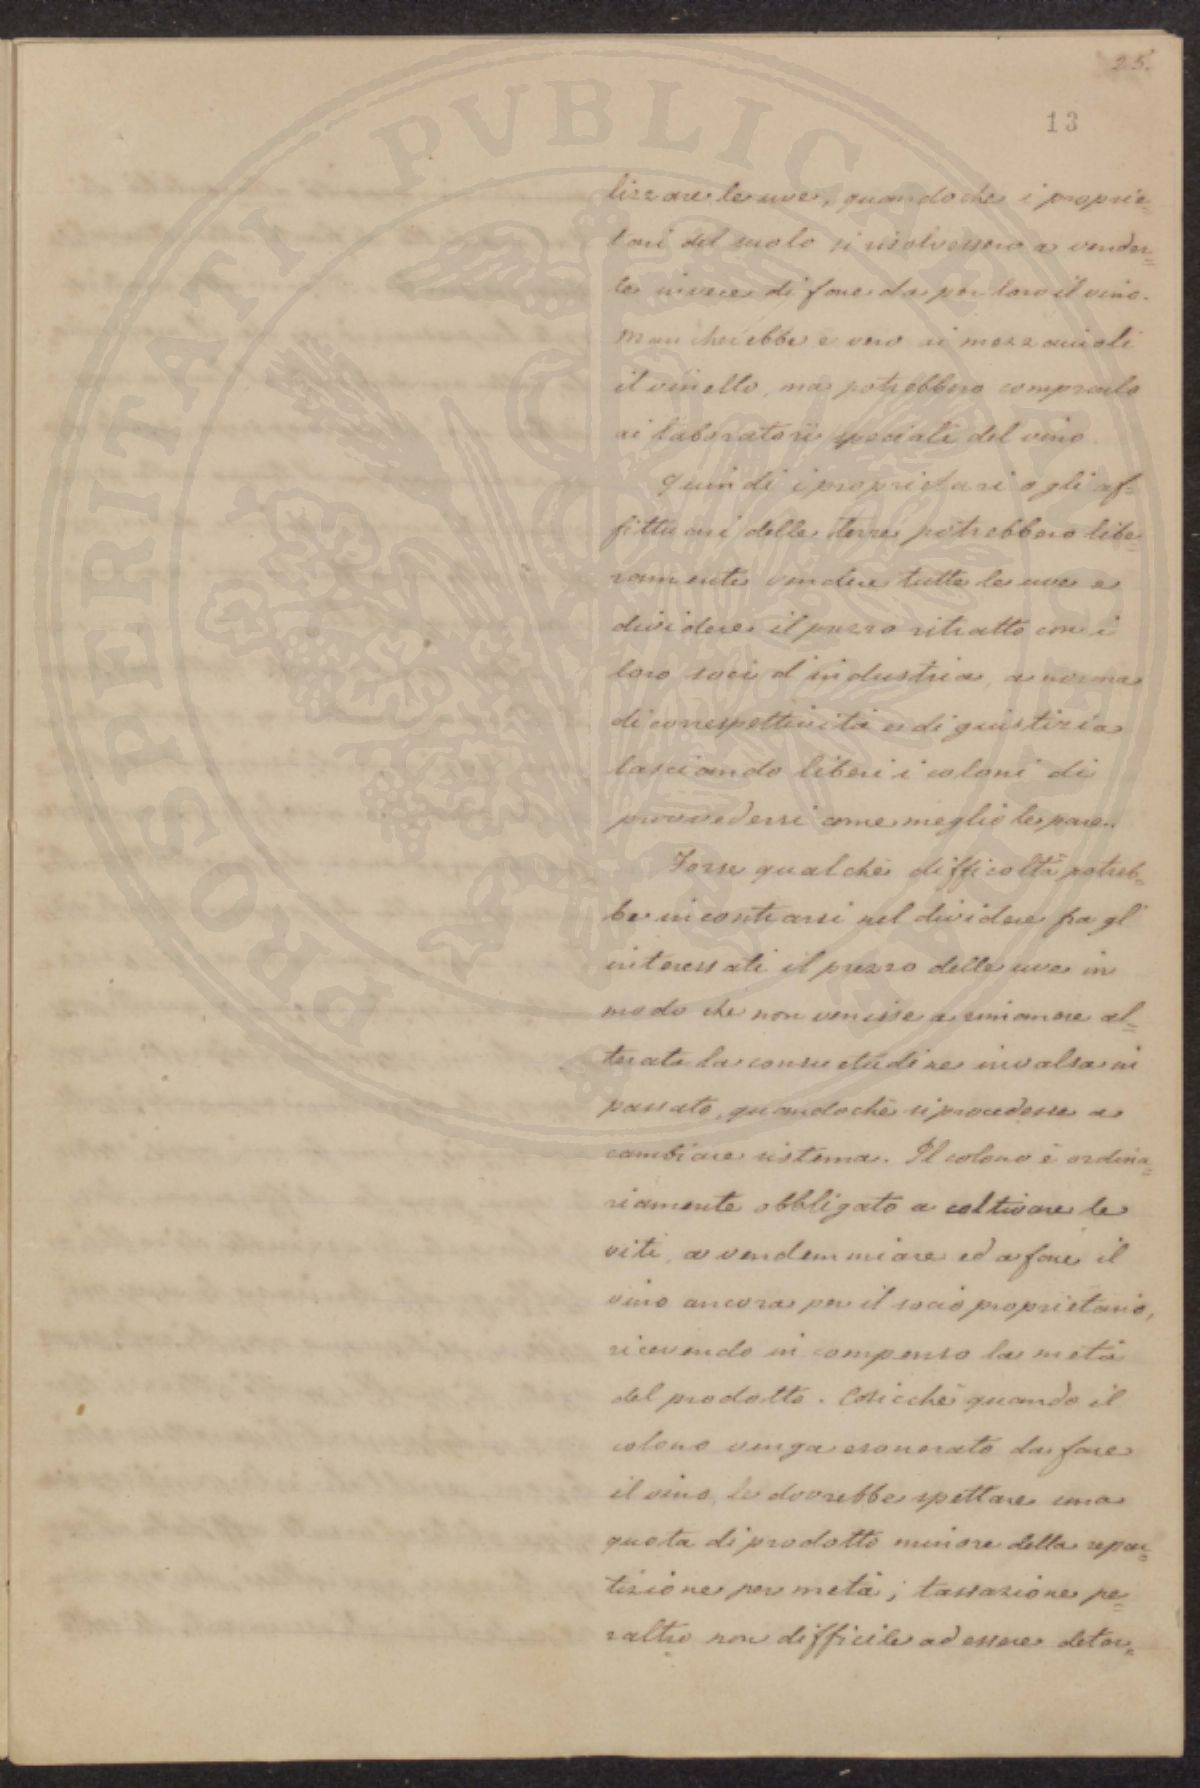 25.
13
lizzare le uve, quandoche i proprie=
tari del suolo si risolvessero a vender=
le invece di fare da per loro il vino.
Mancherebbe e vero ai mezzaiuoli
il vinello, ma potrebbero comprarlo
ai laboratorii speciali del vino.
Quindi i proprietari o gli af=
fittuari delle terre potrebbero libe=
ramente vendere tutte le uve e
dividere il prezzo ritratto con i
loro soci d'industria, a norma
di correspettività e di giustizia
lasciando liberi i coloni di
provvedersi come meglio le pare.
Forse qualche difficoltà potreb=
be incontrarsi nel dividere fra gl'
interessati il prezzo delle uve in
modo che non venisse a rimanere al=
terata la consuetudine invalsa in
passato, quandochè si procedesse a
cambiare sistema. Il colono è ordina=
riamente obbligato a coltivare le
viti, a vendemmiare ed a fare il
vino ancora per il socio proprietario,
ricevendo in compenso la metà
del prodotto. Cosicchè quando il
colono venga esonerato da fare
il vino, le dovrebbe spettare una
quota di prodotto minore della repar=
tizione per metà; tassazione pe=
raltro non difficile ad essere deter=
PROSPERITATI PVBLICAE AVGENDAE